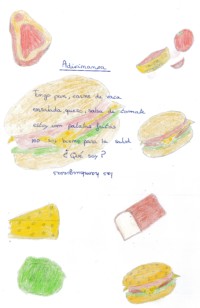 Adivinanza
Tengo pan, carne de vaca
ensalada, queso, salsa de tomate
estoy con patatas fritas
no soy buena para la salud
¿Qué soy?
las hamburguesas